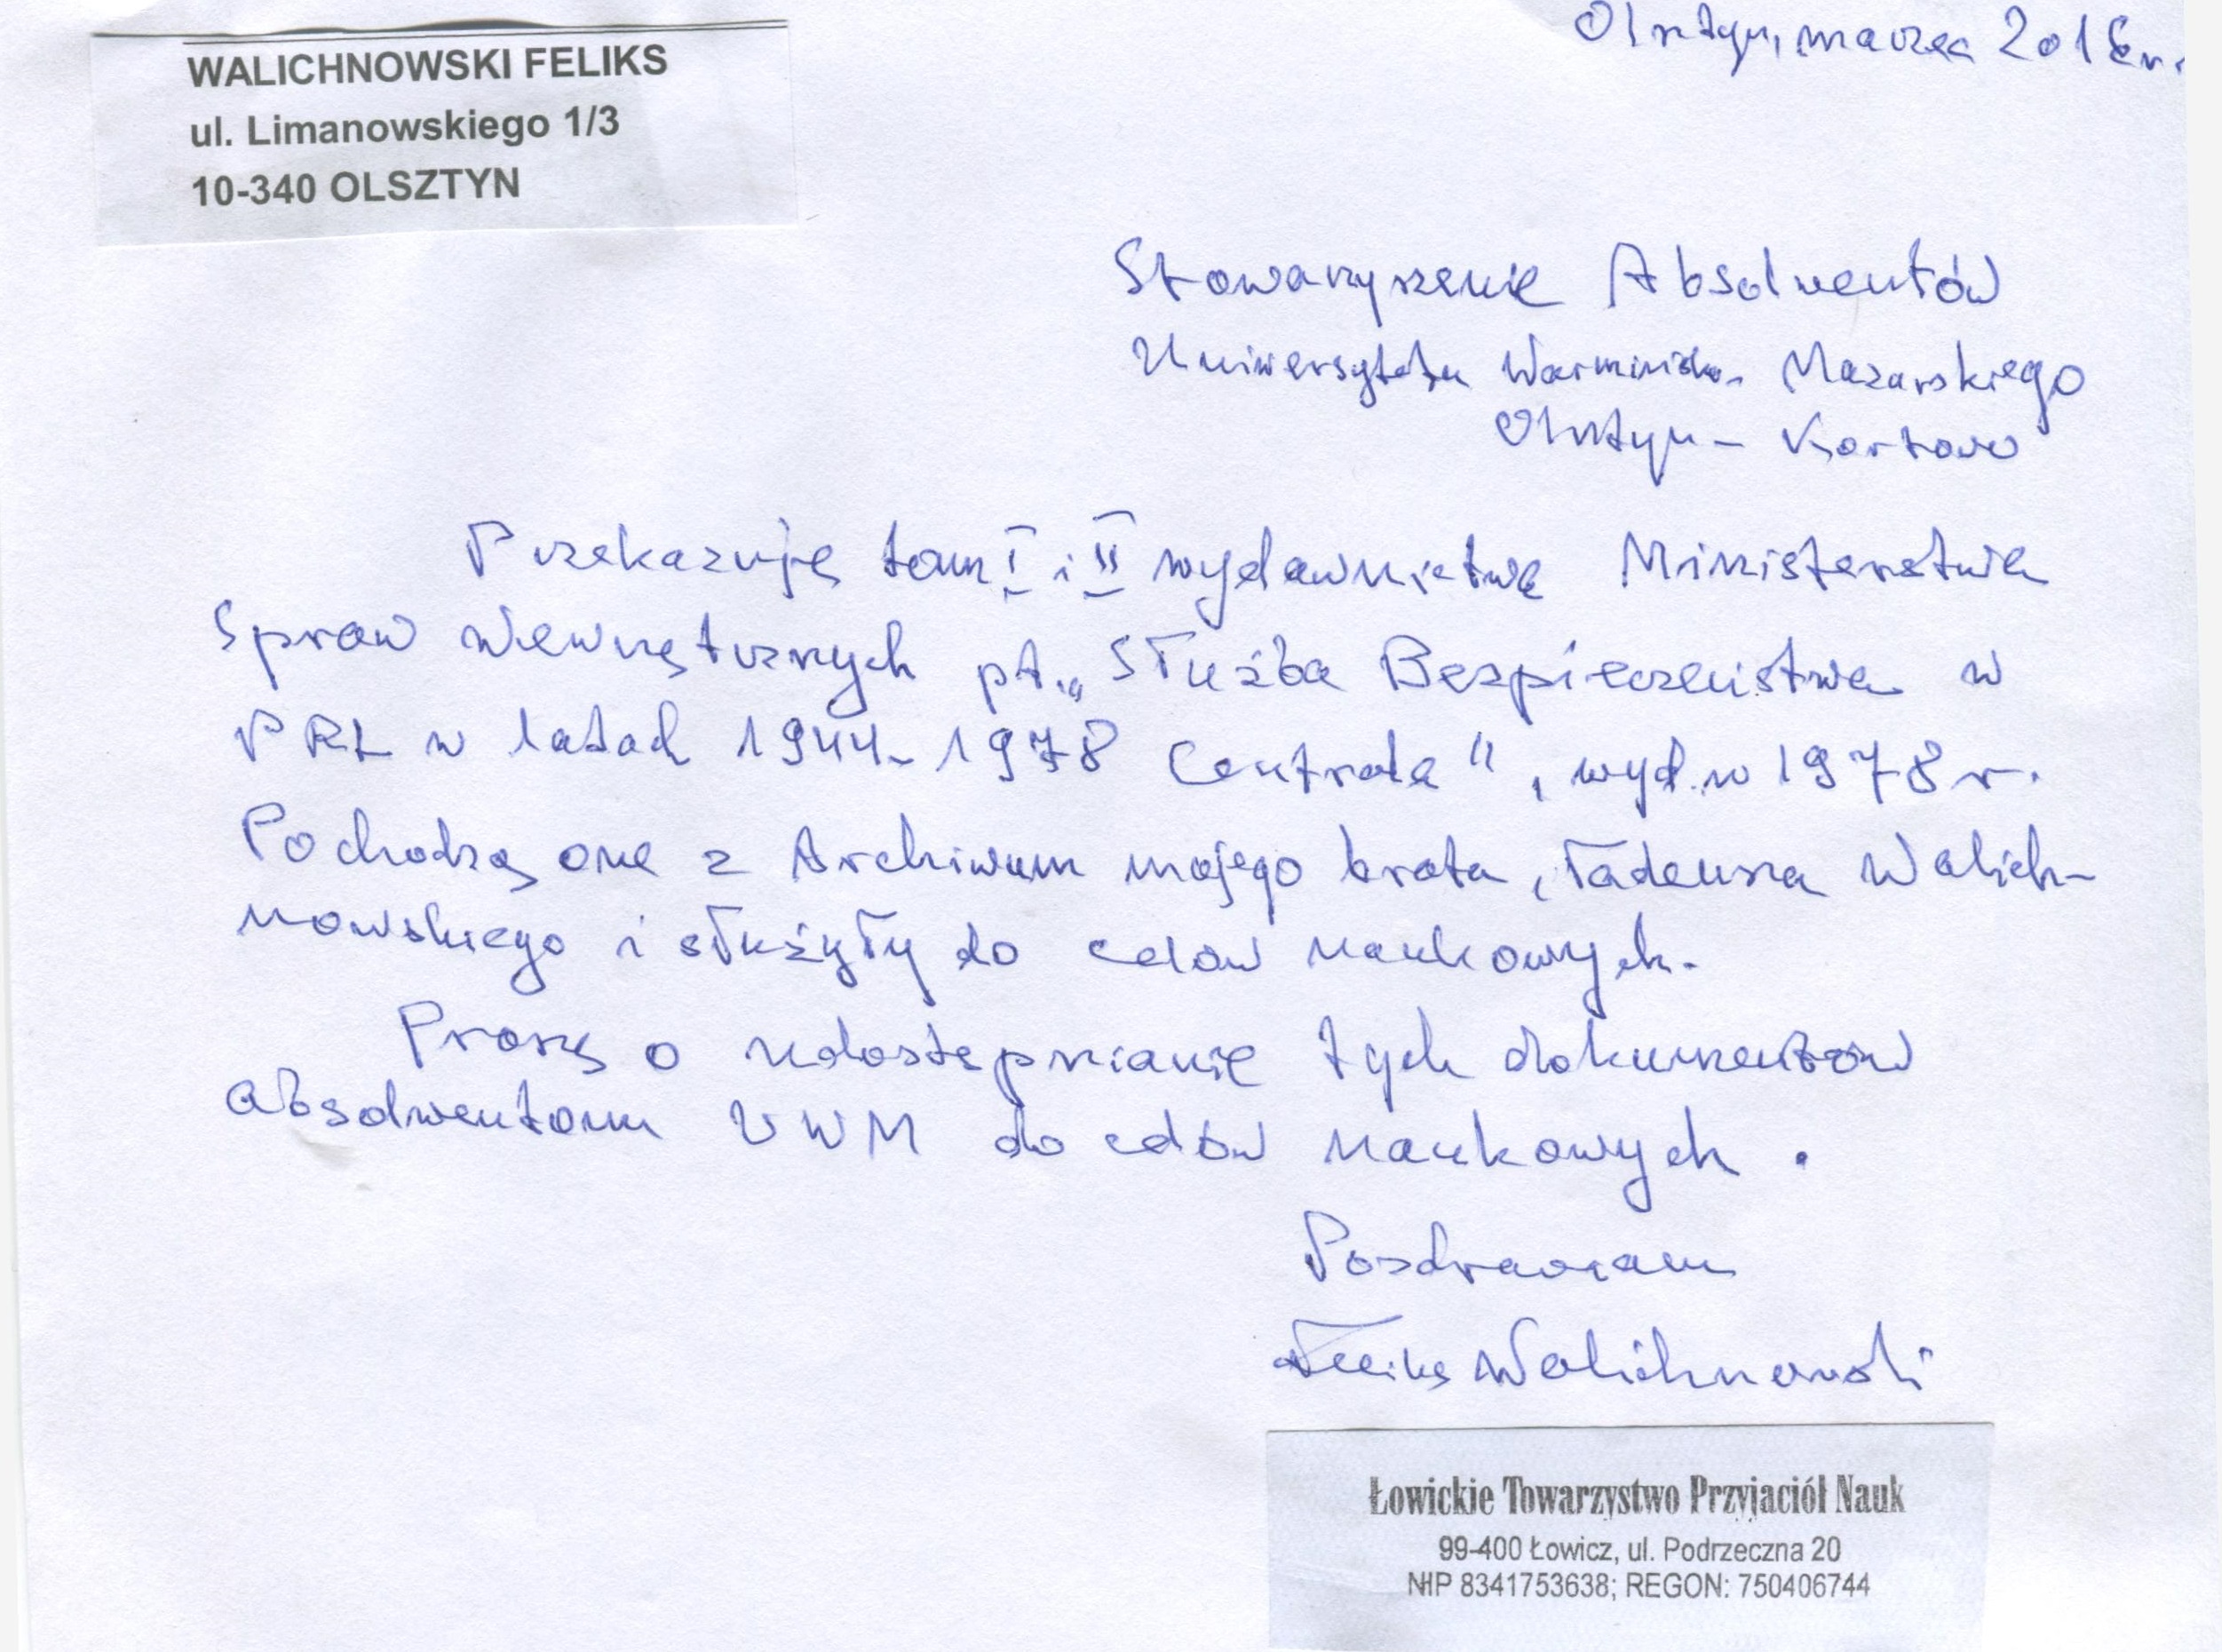 WALICHNOWSKI FELIKS
ul. Limanowskiego 1/3
10-340 OLSZTYN
Olsztyn, marzec 2016 r.
Stowarzyszenie Absolwentów
Uniwersytetu Warmińsko-Mazurskiego
Olsztyn - Kortowo
Przekazuję tom I i II wydawnictwa Ministerstwa
Spraw Wewnętrznych pt. „Służba Bezpieczeństwa w
PRL w latach 1944-1978 Centrala", wyd. w 1978 r.
Pochodzą one z Archiwum mojego brata, Tadeusza Walich-
nowskiego i służyły do celów naukowych.
Proszę o udostępnianie tych dokumentów
absolwentom UWM do celów naukowych.
Pozdrawiam
Feliks Walichnowski
Łowickie Towarzystwo Przyjaciół Nauk
99-400 Łowicz, ul. Podrzeczna 20
NIP 8341753638; REGON: 750406744